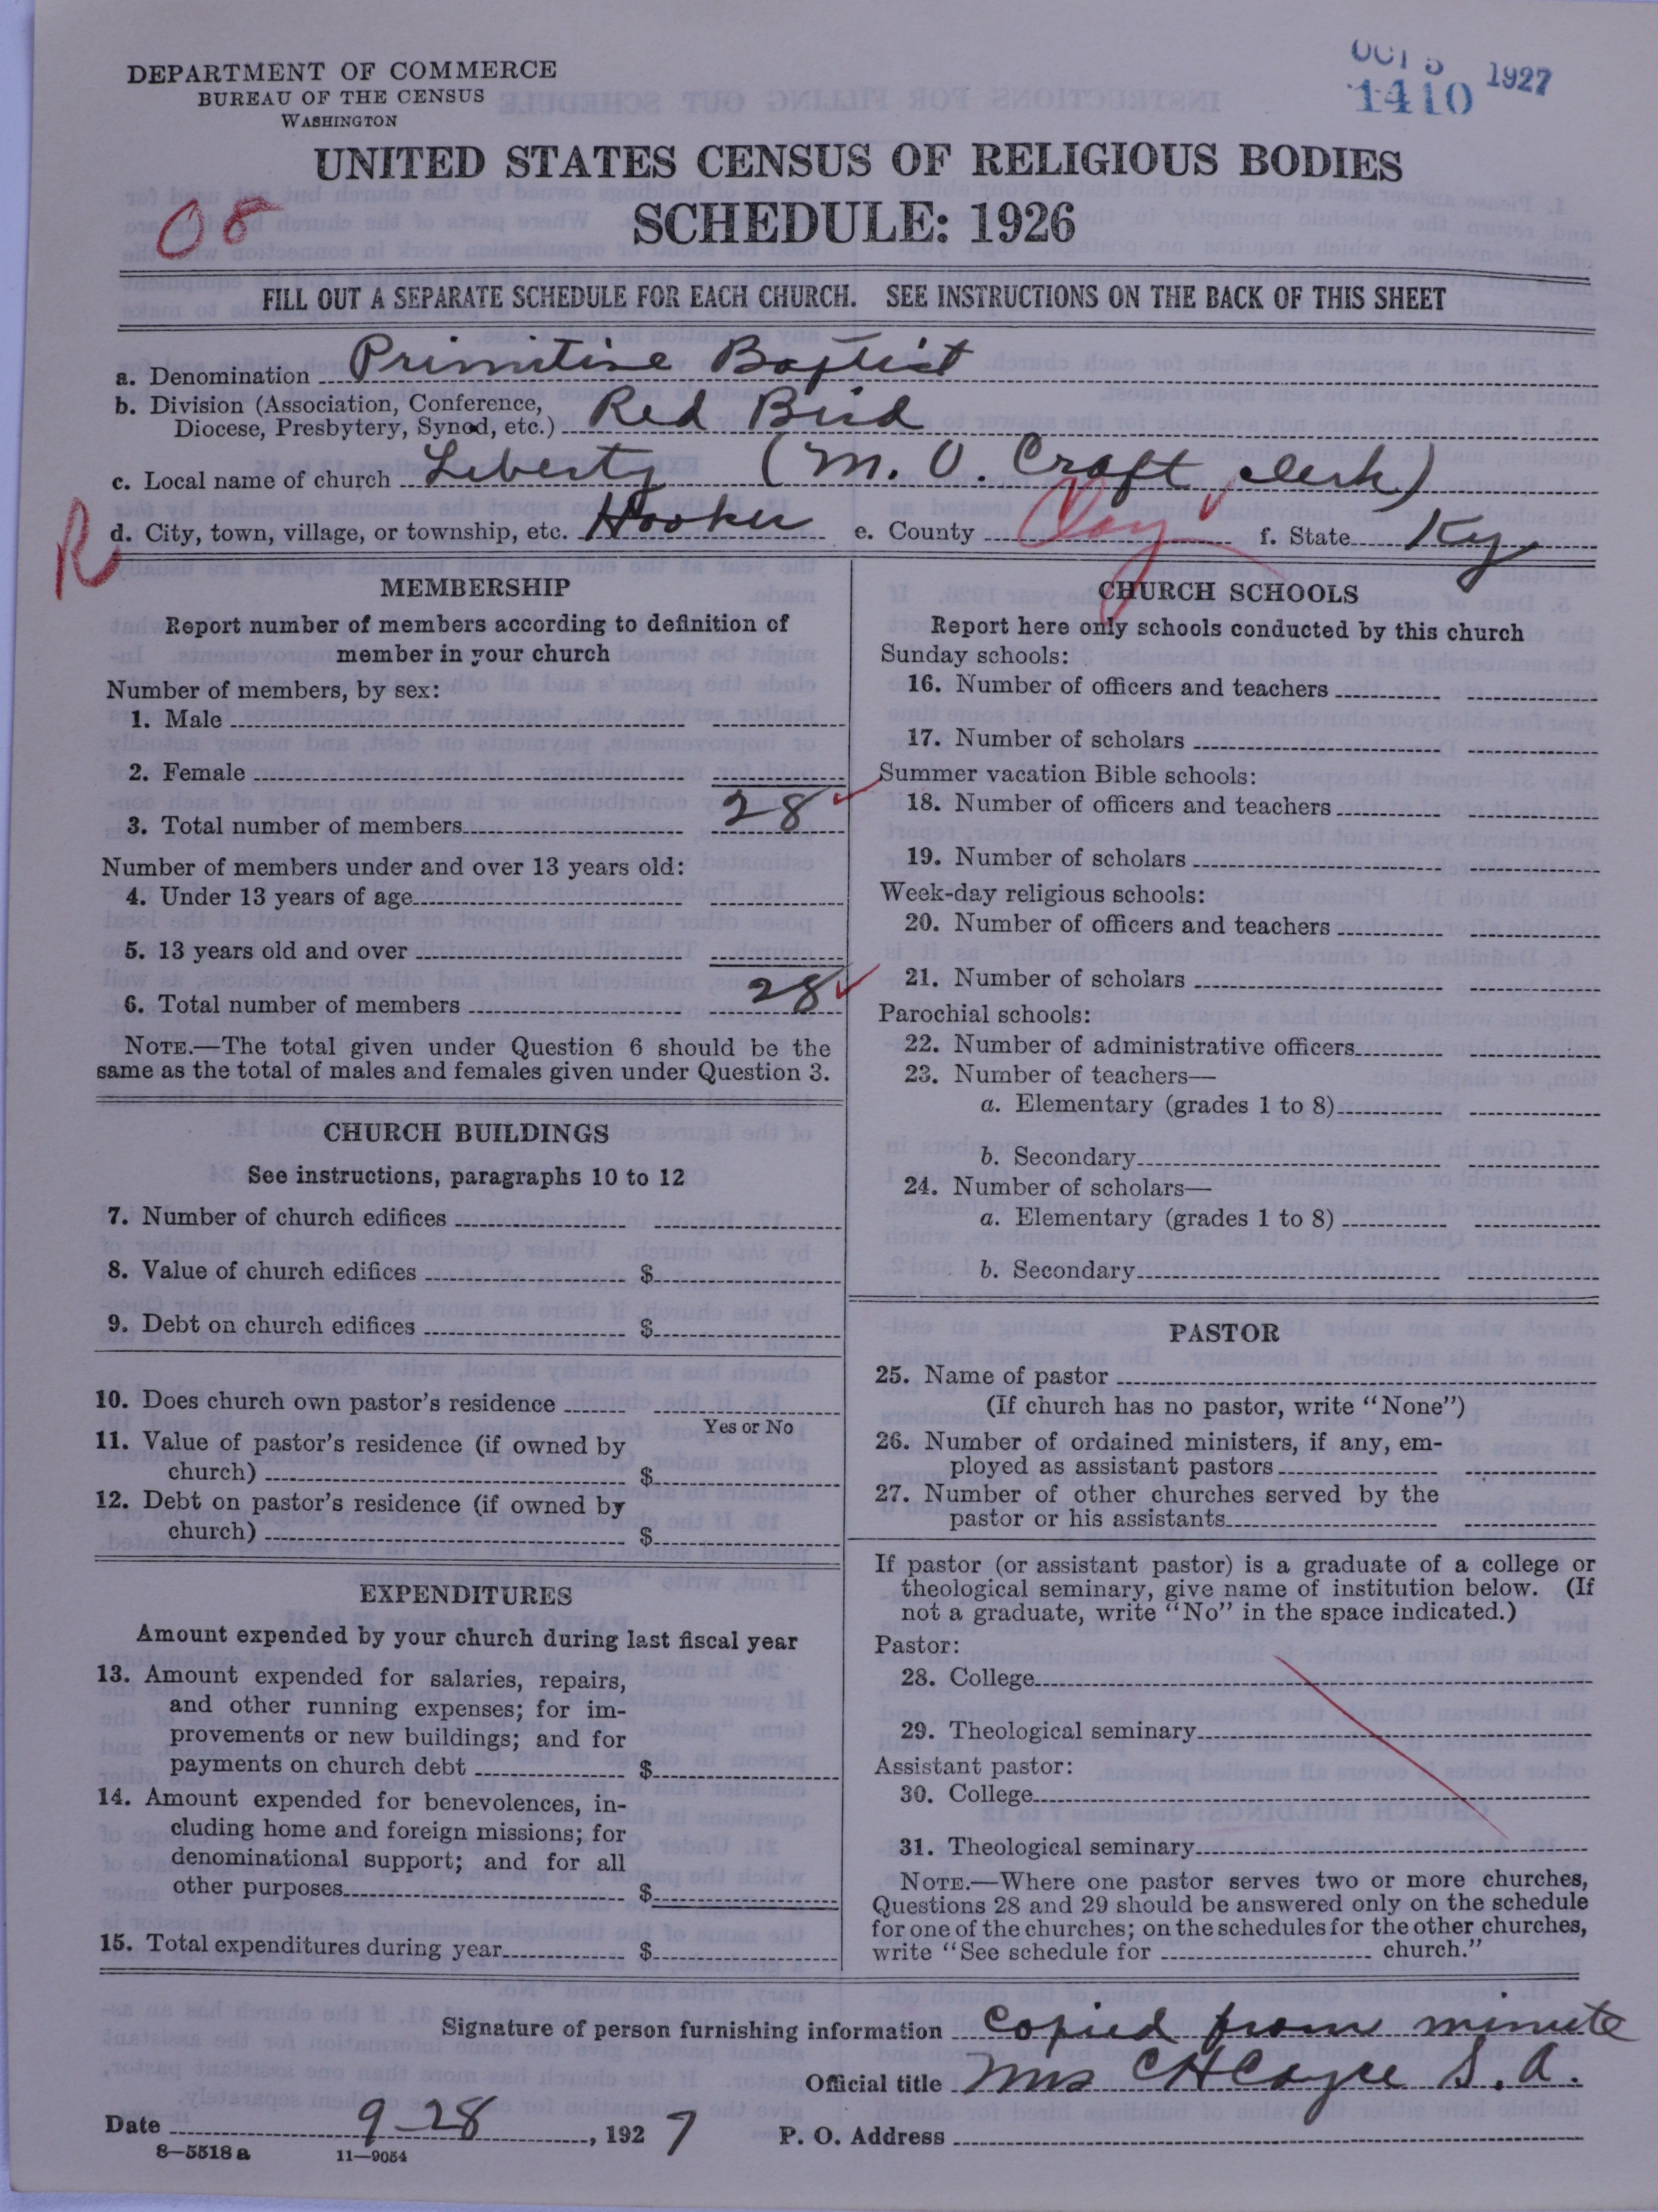 DEPARTMENT OF COMMERCE
BUREAU OF THE CENSUS
WASHINGTON
OCT 5 1927
1410
UNITED STATES CENSUS OF RELIGIOUS BODIES
SCHEDULE: 1926
08
FILL OUT A SEPARATE SCHEDULE FOR EACH CHURCH. SEE INSTRUCTIONS ON THE BACK OF THIS SHEET
a. Denomination Primitive Baptist
b. Division (Association, Conference,
Diocese, Presbytery, Synod, etc.) Red Bird
c. Local name of church Liberty (M. O. Craft clerk)
R
d. City, town, village, or township, etc. Hooker e. County Clay f. State Ky
MEMBERSHIP
Report number of members according to definition of
member in your church
Number of members, by sex:
1. Male
2. Female
3. Total number of members 28
Number of members under and over 13 years old:
4. Under 13 years of age
5. 13 years old and over
6. Total number of members 28
NOTE.—The total given under Question 6 should be the
same as the total of males and females given under Question 3.
CHURCH BUILDINGS
See instructions, paragraphs 10 to 12
7. Number of church edifices
8. Value of church edifices $
9. Debt on church edifices $
10. Does church own pastor's residence
Yes or No
11. Value of pastor's residence (if owned by
church) $
12. Debt on pastor's residence (if owned by
church) $
EXPENDITURES
Amount expended by your church during last fiscal year
13. Amount expended for salaries, repairs,
and other running expenses; for im-
provements or new buildings; and for
payments on church debt $
14. Amount expended for benevolences, in-
cluding home and foreign missions; for
denominational support; and for all
other purposes $
15. Total expenditures during year $
CHURCH SCHOOLS
Report here only schools conducted by this church
Sunday schools:
16. Number of officers and teachers
17. Number of scholars
Summer vacation Bible schools:
18. Number of officers and teachers
19. Number of scholars
Week-day religious schools:
20. Number of officers and teachers
21. Number of scholars
Parochial schools:
22. Number of administrative officers
23. Number of teachers—
a. Elementary (grades 1 to 8)
b. Secondary
24. Number of scholars—
a. Elementary (grades 1 to 8)
b. Secondary
PASTOR
25. Name of pastor
(If church has no pastor, write "None")
26. Number of ordained ministers, if any, em-
ployed as assistant pastors
27. Number of other churches served by the
pastor or his assistants
If pastor (or assistant pastor) is a graduate of a college or
theological seminary, give name of institution below. (If
not a graduate, write "No" in the space indicated.)
Pastor:
28. College
29. Theological seminary
Assistant pastor:
30. College
31. Theological seminary
NOTE.—Where one pastor serves two or more churches,
Questions 28 and 29 should be answered only on the schedule
for one of the churches; on the schedules for the other churches,
write "See schedule for church."
Signature of person furnishing information Copied from minute
Official title Mrs C H Cayce S. A.
Date 9-28, 1927 P. O. Address
8—5518 a 11—9054